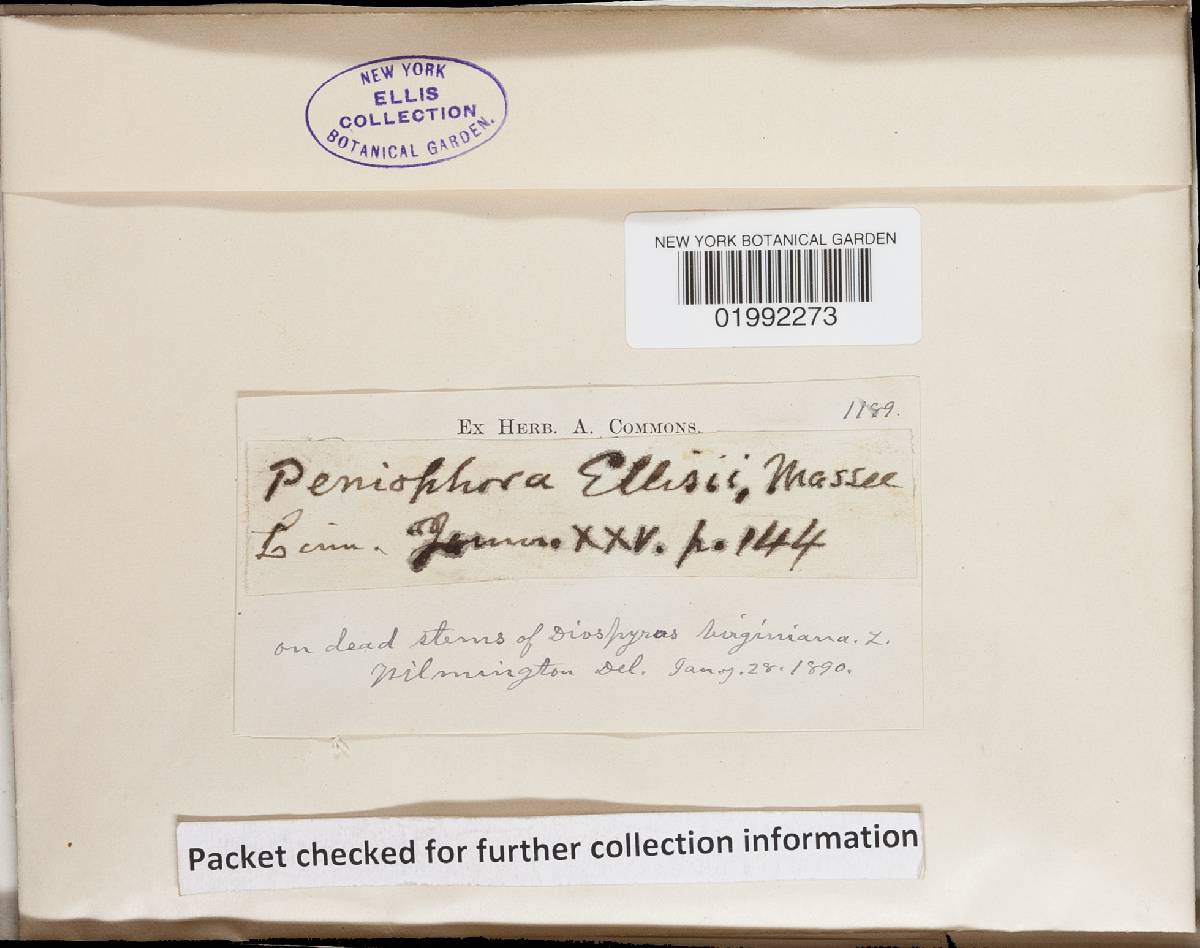 NEW YORK
ELLIS
COLLECTION
BOTANICAL GARDEN.
NEW YORK BOTANICAL GARDEN
01992273
1189.
EX HERB. A. COMMONS.
Peniophora Ellisii, Massee
Linn. Journ. XXV. p. 144
on dead stems of Diospyros Virginiana. L.
Wilmington Del. Jany. 28. 1890.
Packet checked for further collection information